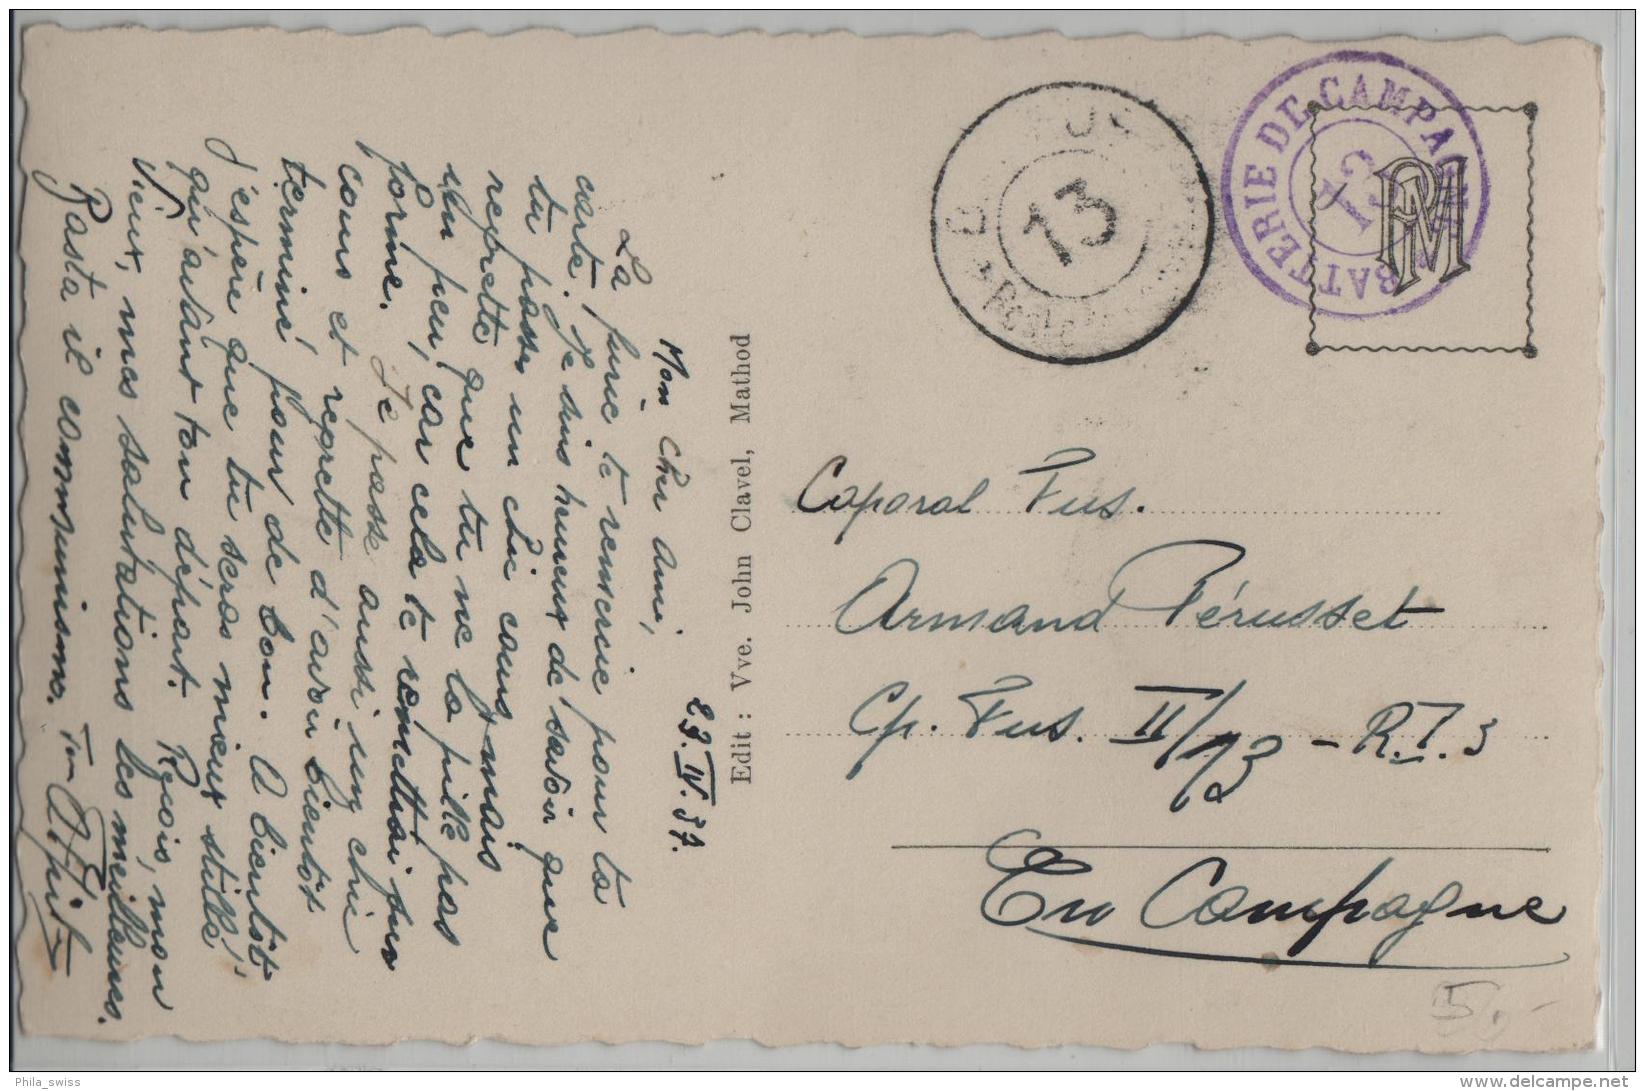 Mon cher ami,
23.IV.37.
La  te remercie pour ta
carte. Je suis heureux de savoir que
tu passes un chic cours, mais
regrette que tu ne la pille pas
un peu, car cela te remettrai en
forme. Je passe aussi un chic
cours et regrette d'avoir bientôt
terminé pour de bon. A bientôt
j'espère que tu seras mieux stillé,
qu'avant ton départ. Reçois, mon
vieux, mes salutations les meilleures.
Basta il communismo. Ton
Edit : Vve. John Clavel, Mathod
13
Poste
BATTERIE DE CAMPAGNE
13
PM
Caporal Fus.
Armand Pérusset
Cp. Fus. II/13 - R.I. 3
En Campagne
5.-
Phila_swiss
delcampe.net